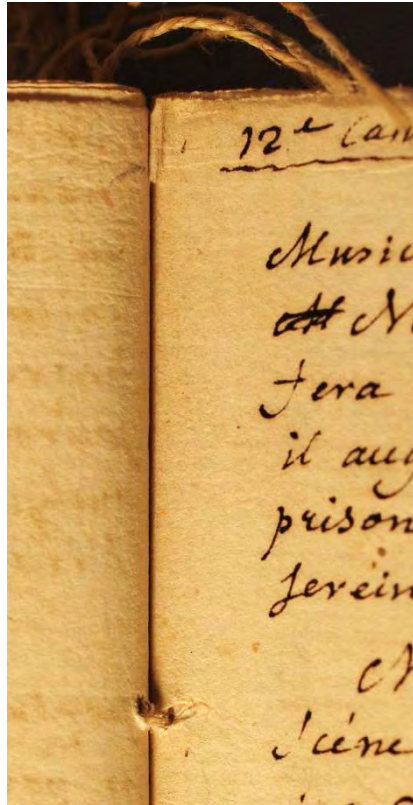 12e Can
Music
N
fera
il aug
prison
serein
N
Scéne